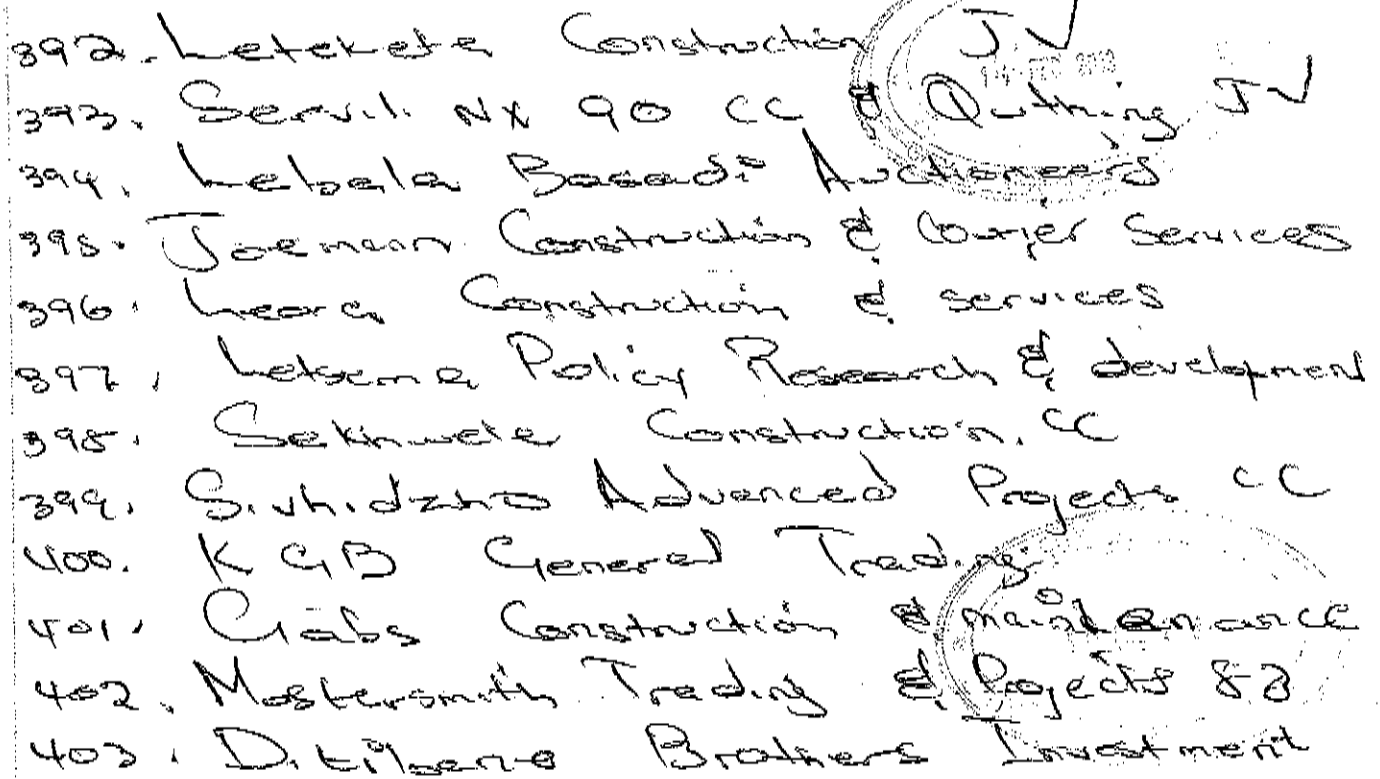 392. Letekete Construction JV
393. Servili NX 90 CC & Quthing JV
394. Lebala Basadi Auctioneers
395. Joemann Construction & Courier Services
396. Leara Construction & services
397. Letsema Policy Research & development
398. Sekhwela Construction. CC
399. Sivhidzho Advanced Projects CC
400. KGB General Trading
401. Gabs Construction & maintenance
402. Mastersmith Trading & Projects 82
403. Brothers Investment